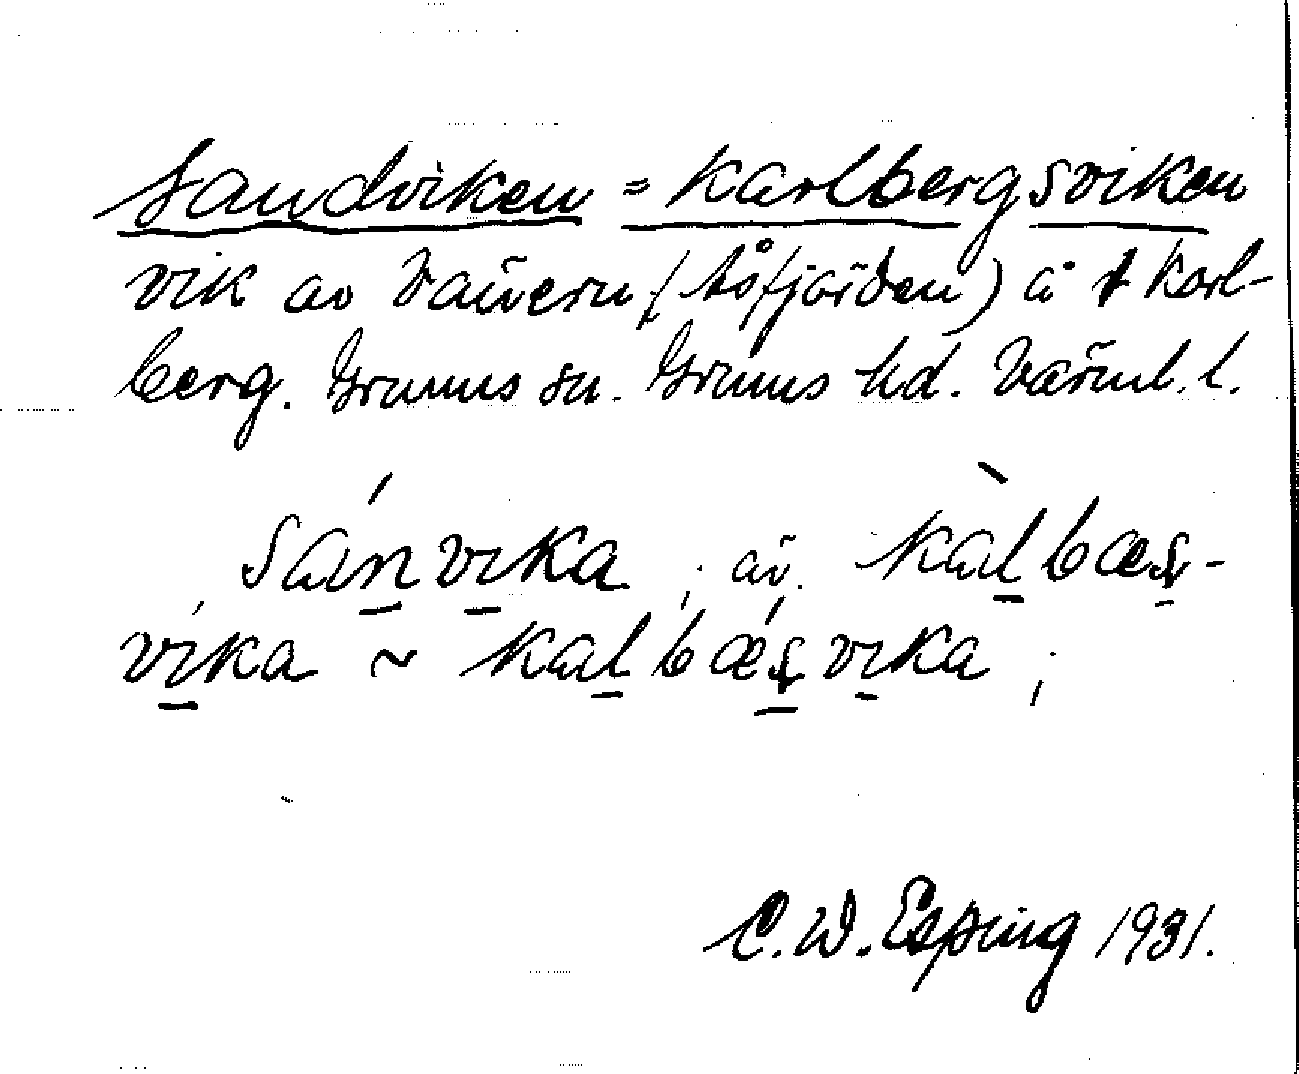 Sandviken = Karlbergsviken
vik av Vänern (Åsfjärden) å t Karl-
berg. Grums sn. Grums hd. Värml. l.
sánvika, äv. kàlbæs-
vika ~ kalbǽsvika,
C. W. Esping 1931.